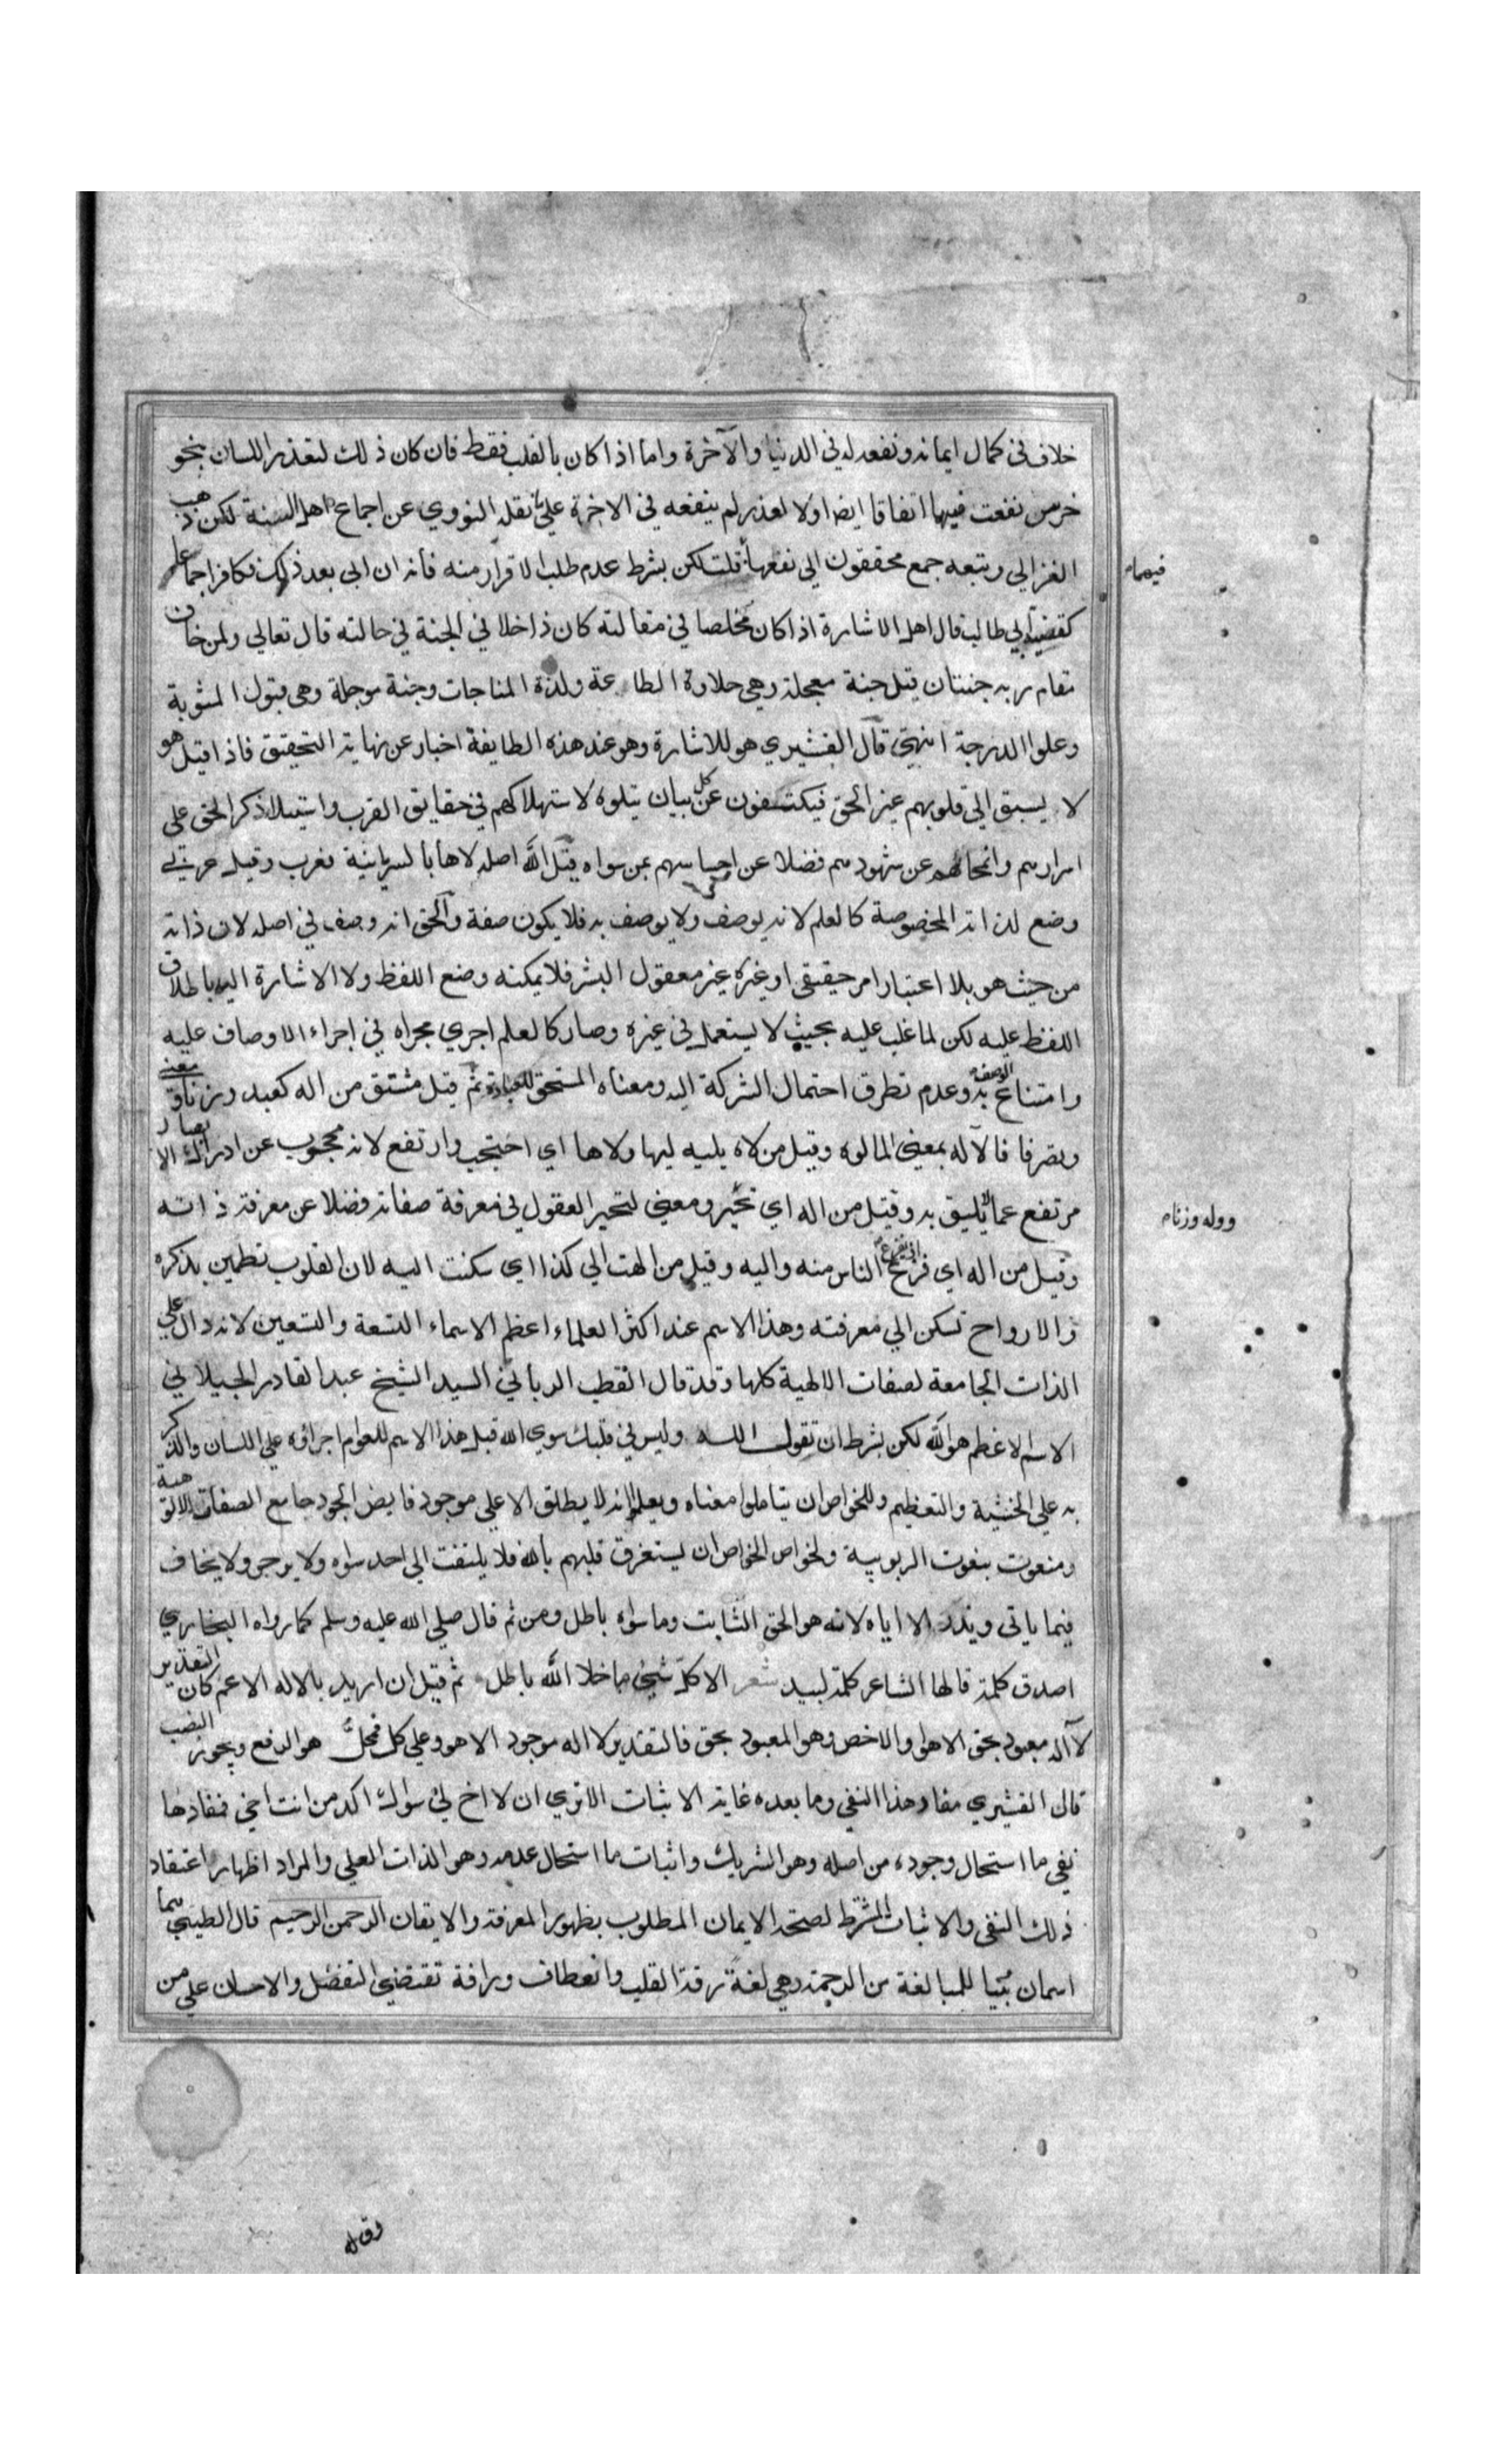 خلاف في كمال ايمانه ونفعه له في الدنيا والآخرة واما اذا كان بالقلب فقط فان كان ذلك لتعذر اللسان بنحو
خرس نفعت فيهما اتفاقا ايضا او لا لعذر لم ينفعه في الاخرة على ما نقله النووي عن اجماع اهل السنة لكن ذهب
الغزالي وتبعه جمع محققون الى نفعها قلت لكن بشرط عدم طلب الاقرار منه فانه ان ابى بعد ذلك فكافر اجماعا
فيهما
كقضية ابي طالب قال اهل الاشارة اذا كان مخلصا في مقالته كان داخلا في الجنة في حالته قال تعالى ولمن خاف
مقام ربه جنتان قيل جنة معجلة وهي حلاوة الطاعة ولذة المناجات وجنة موجلة وهي قبول المثوبة
وعلوا الدرجة انتهى قال القشيري هو للاشارة وهو عند هذه الطايفة اخبار عن نهاية التحقيق فاذا قيل هو
لا يسبق الى قلوبهم غير الحق فيكتفون عن كل بيان يتلوه لاستهلاكهم في حقايق القرب واستيلاء ذكر الحق على
اسرارهم وانمحائهم عن شهودهم فضلا عن احساسهم بمن سواه قيل الله اصله لاها بالسريانية فعرب وقيل عربي
وضع لذاته المخصوصة كالعلم لانه يوصف ولا يوصف به فلا يكون صفة والحق انه وصف في اصله لان ذاته
من حيث هو بلا اعتبار امر حقيقي او غيره غير معقول البشر فلا يمكنه وضع اللفظ ولا الاشارة اليه باطلاق
اللفظ عليه لكن لما غلب عليه بحيث لا يستعمل في غيره وصار كالعلم اجري مجراه في اجراء الاوصاف عليه
وامتناع الوصف به وعدم تطرق احتمال الشركة اليه ومعناه المستحق للعبادة ثم قيل مشتق من اله كعبد وزنا ومعنى
وتصرفا فالآله بمعنى المالوه وقيل من لاه يليه ليها ولاها اي احتجب وارتفع لانه محجوب عن ادراك الابصار
مرتفع عما يليق به وقيل من اله اي تحير ومعنى لتحير العقول في معرفة صفاته فضلا عن معرفة ذاته
ووله وزنام
وقيل من اله اي فزع اذ يفزع الناس منه واليه وقيل من الهت الى كذا اي سكنت اليه لان القلوب تطمين بذكره
والارواح تسكن الى معرفته وهذا الاسم عند اكثر العلماء اعظم الاسماء التسعة والتسعين لانه دال على
الذات الجامعة لصفات الالهية كلها وقد قال القطب الرباني السيد الشيخ عبد القادر الجيلاني
الاسم الاعظم هو الله لكن بشرط ان تقول الله وليس في قلبك سوى الله قيل هذا الاسم للعوام اجراؤه على اللسان والذكر
به على الخشية والتعظيم وللخواص ان يتاملوا معناه ويعلموا انه لا يطلق الا على موجود فايض الجود جامع الصفات الالوهية
ومنعوت بنعوت الربوبية ولخواص الخواص ان يستغرق قلبهم بالله فلا يلتفت الى احد سواه ولا يرجو ولا يخاف
فيما ياتي ويذر الا اياه لانه هو الحق الثابت وما سواه باطل ومن ثم قال صلى الله عليه وسلم كما رواه البخاري
اصدق كلمة قالها الشاعر كلمة لبيد شعر الا كل شيئ ما خلا الله باطل ثم قيل ان اريد بالاله الاعم كان التقدير
لا آله معبود بحق الا هو والاخص وهو المعبود بحق فالتقدير لا اله موجود الا هو وعلى كل فمحل هو الرفع ويجوز النصب
قال القشيري مفاد هذا النفي وما بعده غاية الاثبات الا ترى ان لا اخ لي سواك اكد من انت اخي فمفادها
نفي ما استحال وجوده من اصله وهو الشريك واثبات ما استحال عدمه وهو الذات العلي والمراد اظهار اعتقاد
ذلك النفي والاثبات المشترط لصحة الايمان المطلوب بظهور المعرفة والايقان الرحمن الرحيم قال الطيبي هما
اسمان بنيا للمبالغة من الرحمة وهي لغة رقة القلب وانعطاف ورافة تقتضي التفضل والاحسان على من
وقوله